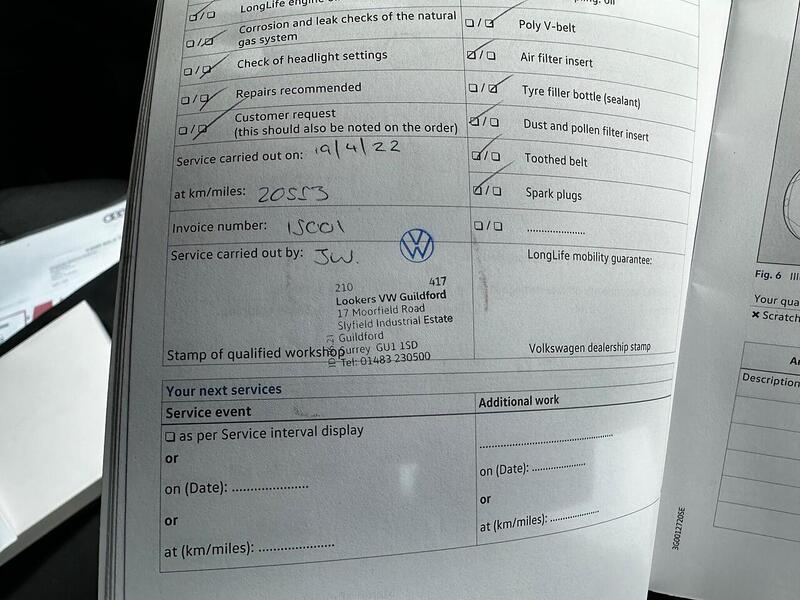 LongLife engine
Corrosion and leak checks of the natural
gas system
Check of headlight settings
Repairs recommended
Customer request
(this should also be noted on the order)
Service carried out on: 19/4/22
at km/miles: 20553
Invoice number: ISC01
Service carried out by: JW.
210 417
Lookers VW Guildford
17 Moorfield Road
Slyfield Industrial Estate
Guildford
Surrey GU1 1SD
Tel: 01483 230500
Stamp of qualified workshop
Poly V-belt
Air filter insert
Tyre filler bottle (sealant)
Dust and pollen filter insert
Toothed belt
Spark plugs
LongLife mobility guarantee:
Volkswagen dealership stamp
Your next services
Service event
as per Service interval display
or
on (Date):
or
at (km/miles):
Additional work
on (Date):
or
at (km/miles):
3G0012720SE
Fig. 6
Your qua
Scratch
Description